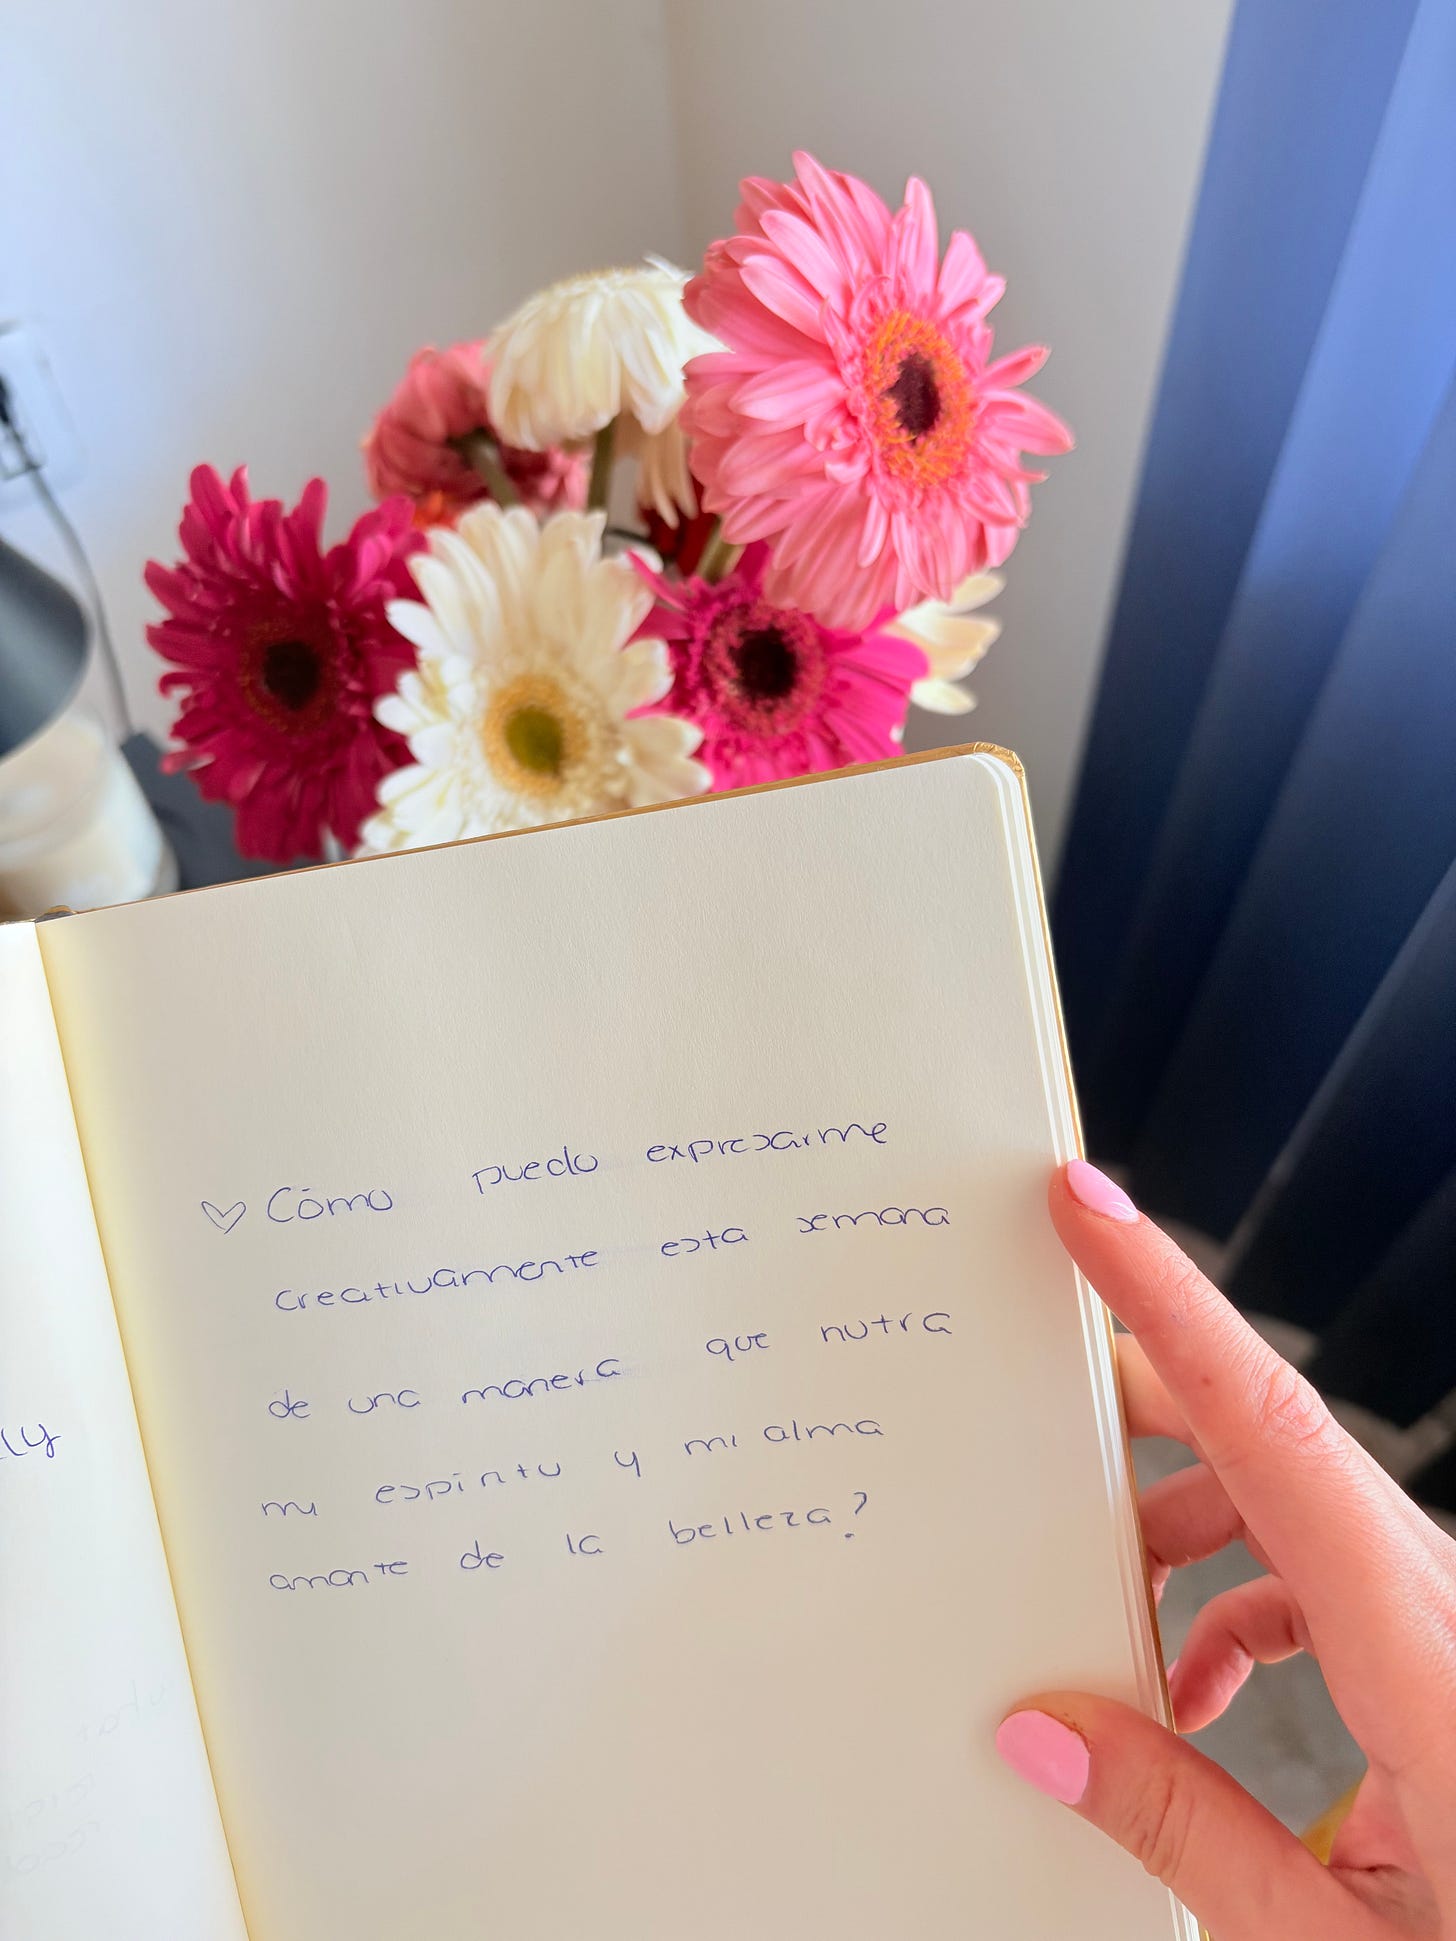 ♡ Cómo puedo expresarme
creativamente esta semana
de una manera que nutra
mi espíritu y mi alma
amante de la belleza?